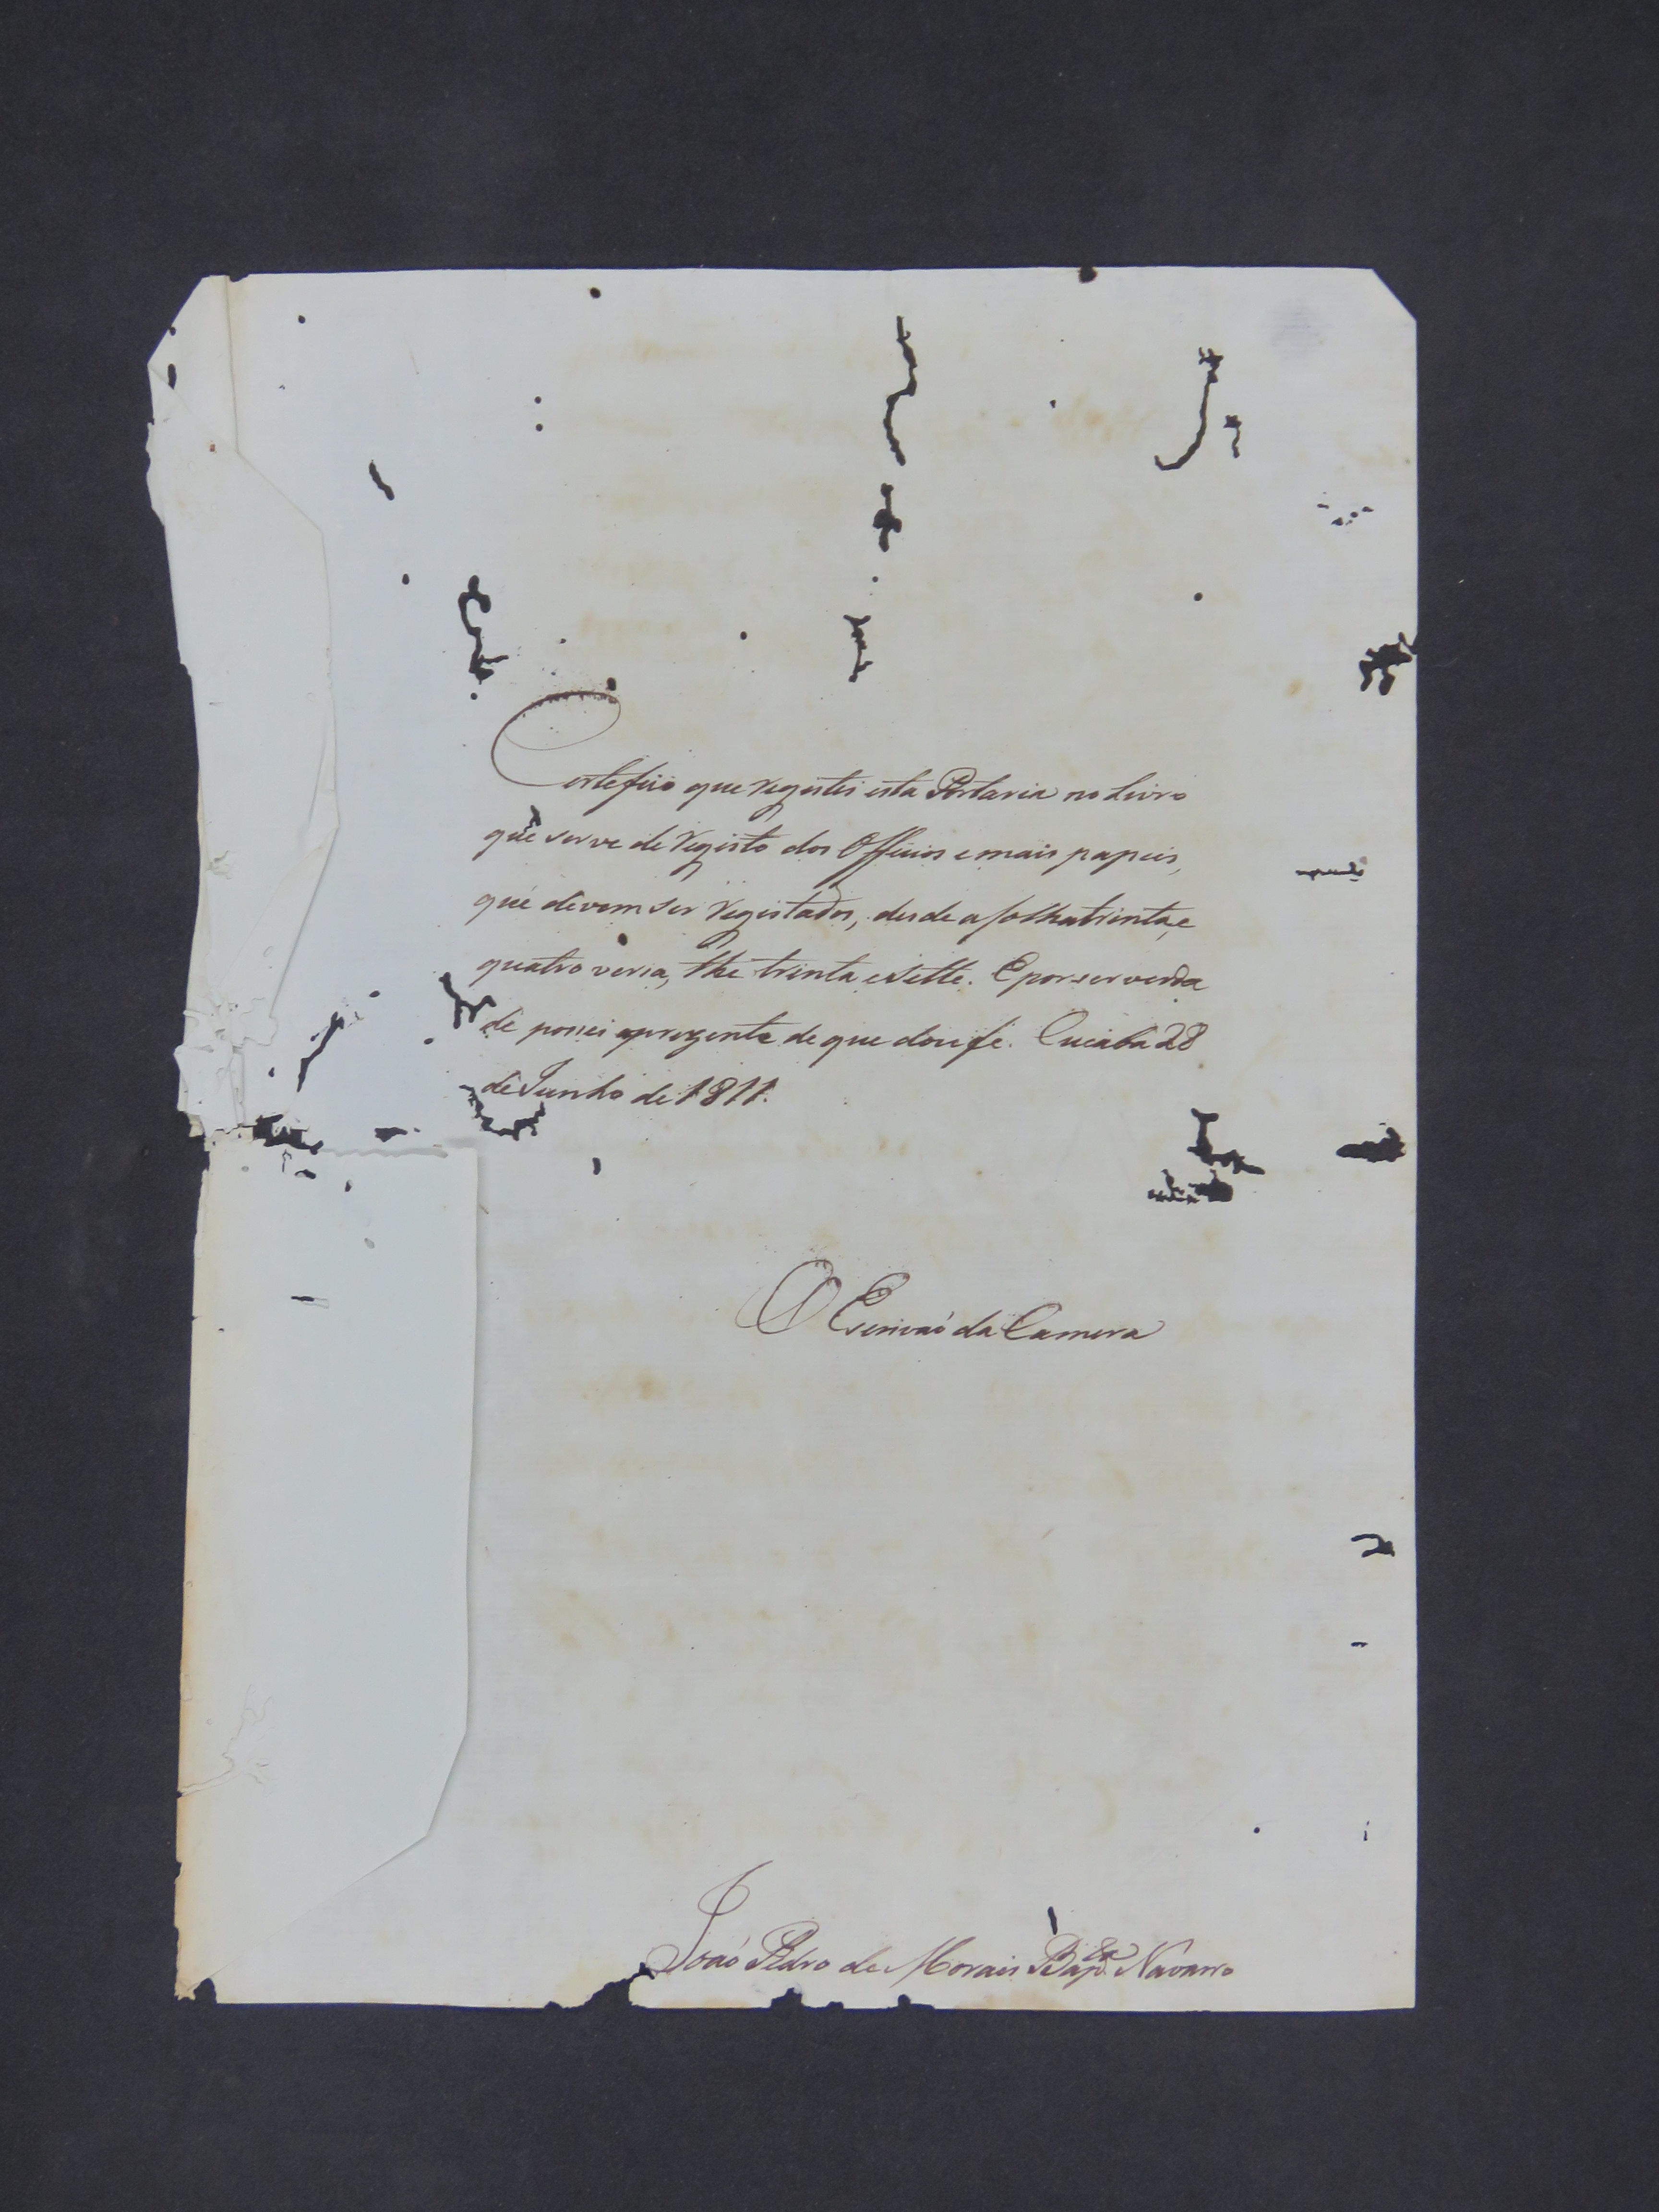 Certefico que registei esta Portaria no Livro
que serve de registo dos Officios e mais papeis,
que devem ser registados, desde a folha trinta, e
quatro versa, the trinta e sette. E por ser verda
de passei a prezente de que dou fé. Cuiabá 28
de Junho de 1811.
O Escrivaõ da Camera
Joaõ Pedro de Morais Bap.ta Navarro